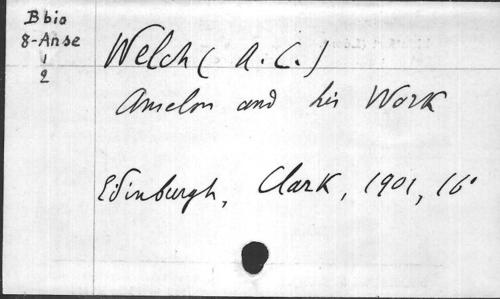 B bio
8-Anse
1
2
Welch (A.C.)
Anselm and his Work
Edinburgh, Clark, 1901, 16°